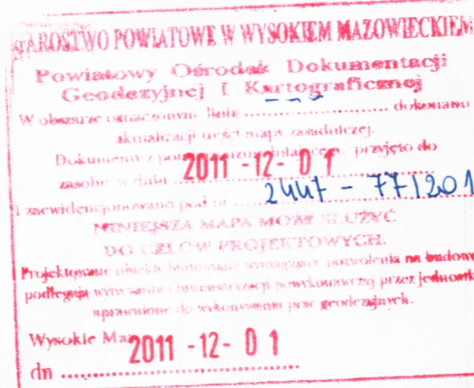 STAROSTWO POWIATOWE W WYSOKIEM MAZOWIECKIEM
Powiatowy Ośrodek Dokumentacji
Geodezyjnej I Kartograficznej
W obszarze oznaczonym linią --- .................... dokonano
aktualizacji treści mapy zasadniczej.
Dokumenty z przyjęto do
zasobu w dniu 2011 -12- 01
i zaewidencjonowano pod nr 2447 - 77/201
NINIEJSZA MAPA MOŻE SŁUŻYĆ
DO CELÓW PROJEKTOWYCH.
Projektowane obiekty budowlane wymagające pozwolenia na budowę
podlegają wytyczeniu i inwentaryzacji powykonawczej przez jednostki
uprawnione do wykonywania prac geodezyjnych.
Wysokie Maz
dn 2011 -12- 01